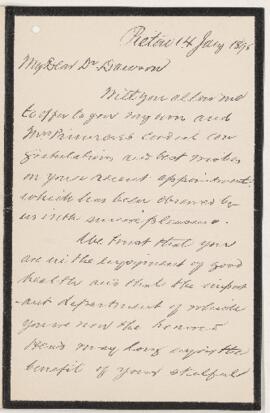 Pictou 14 Jany 18
My Dear Dr Dawson
Will you allow me
to offer to you my own and
Mrs Primrose's cordial con
gratulations and best wishes
on your recent appointment
which has been observed by
us with sincere pleasure.
We trust that you
are in the enjoyment of good
health and that the import
ant department of which
you are now the honored
Head may long enjoy the
benefit of your skilful